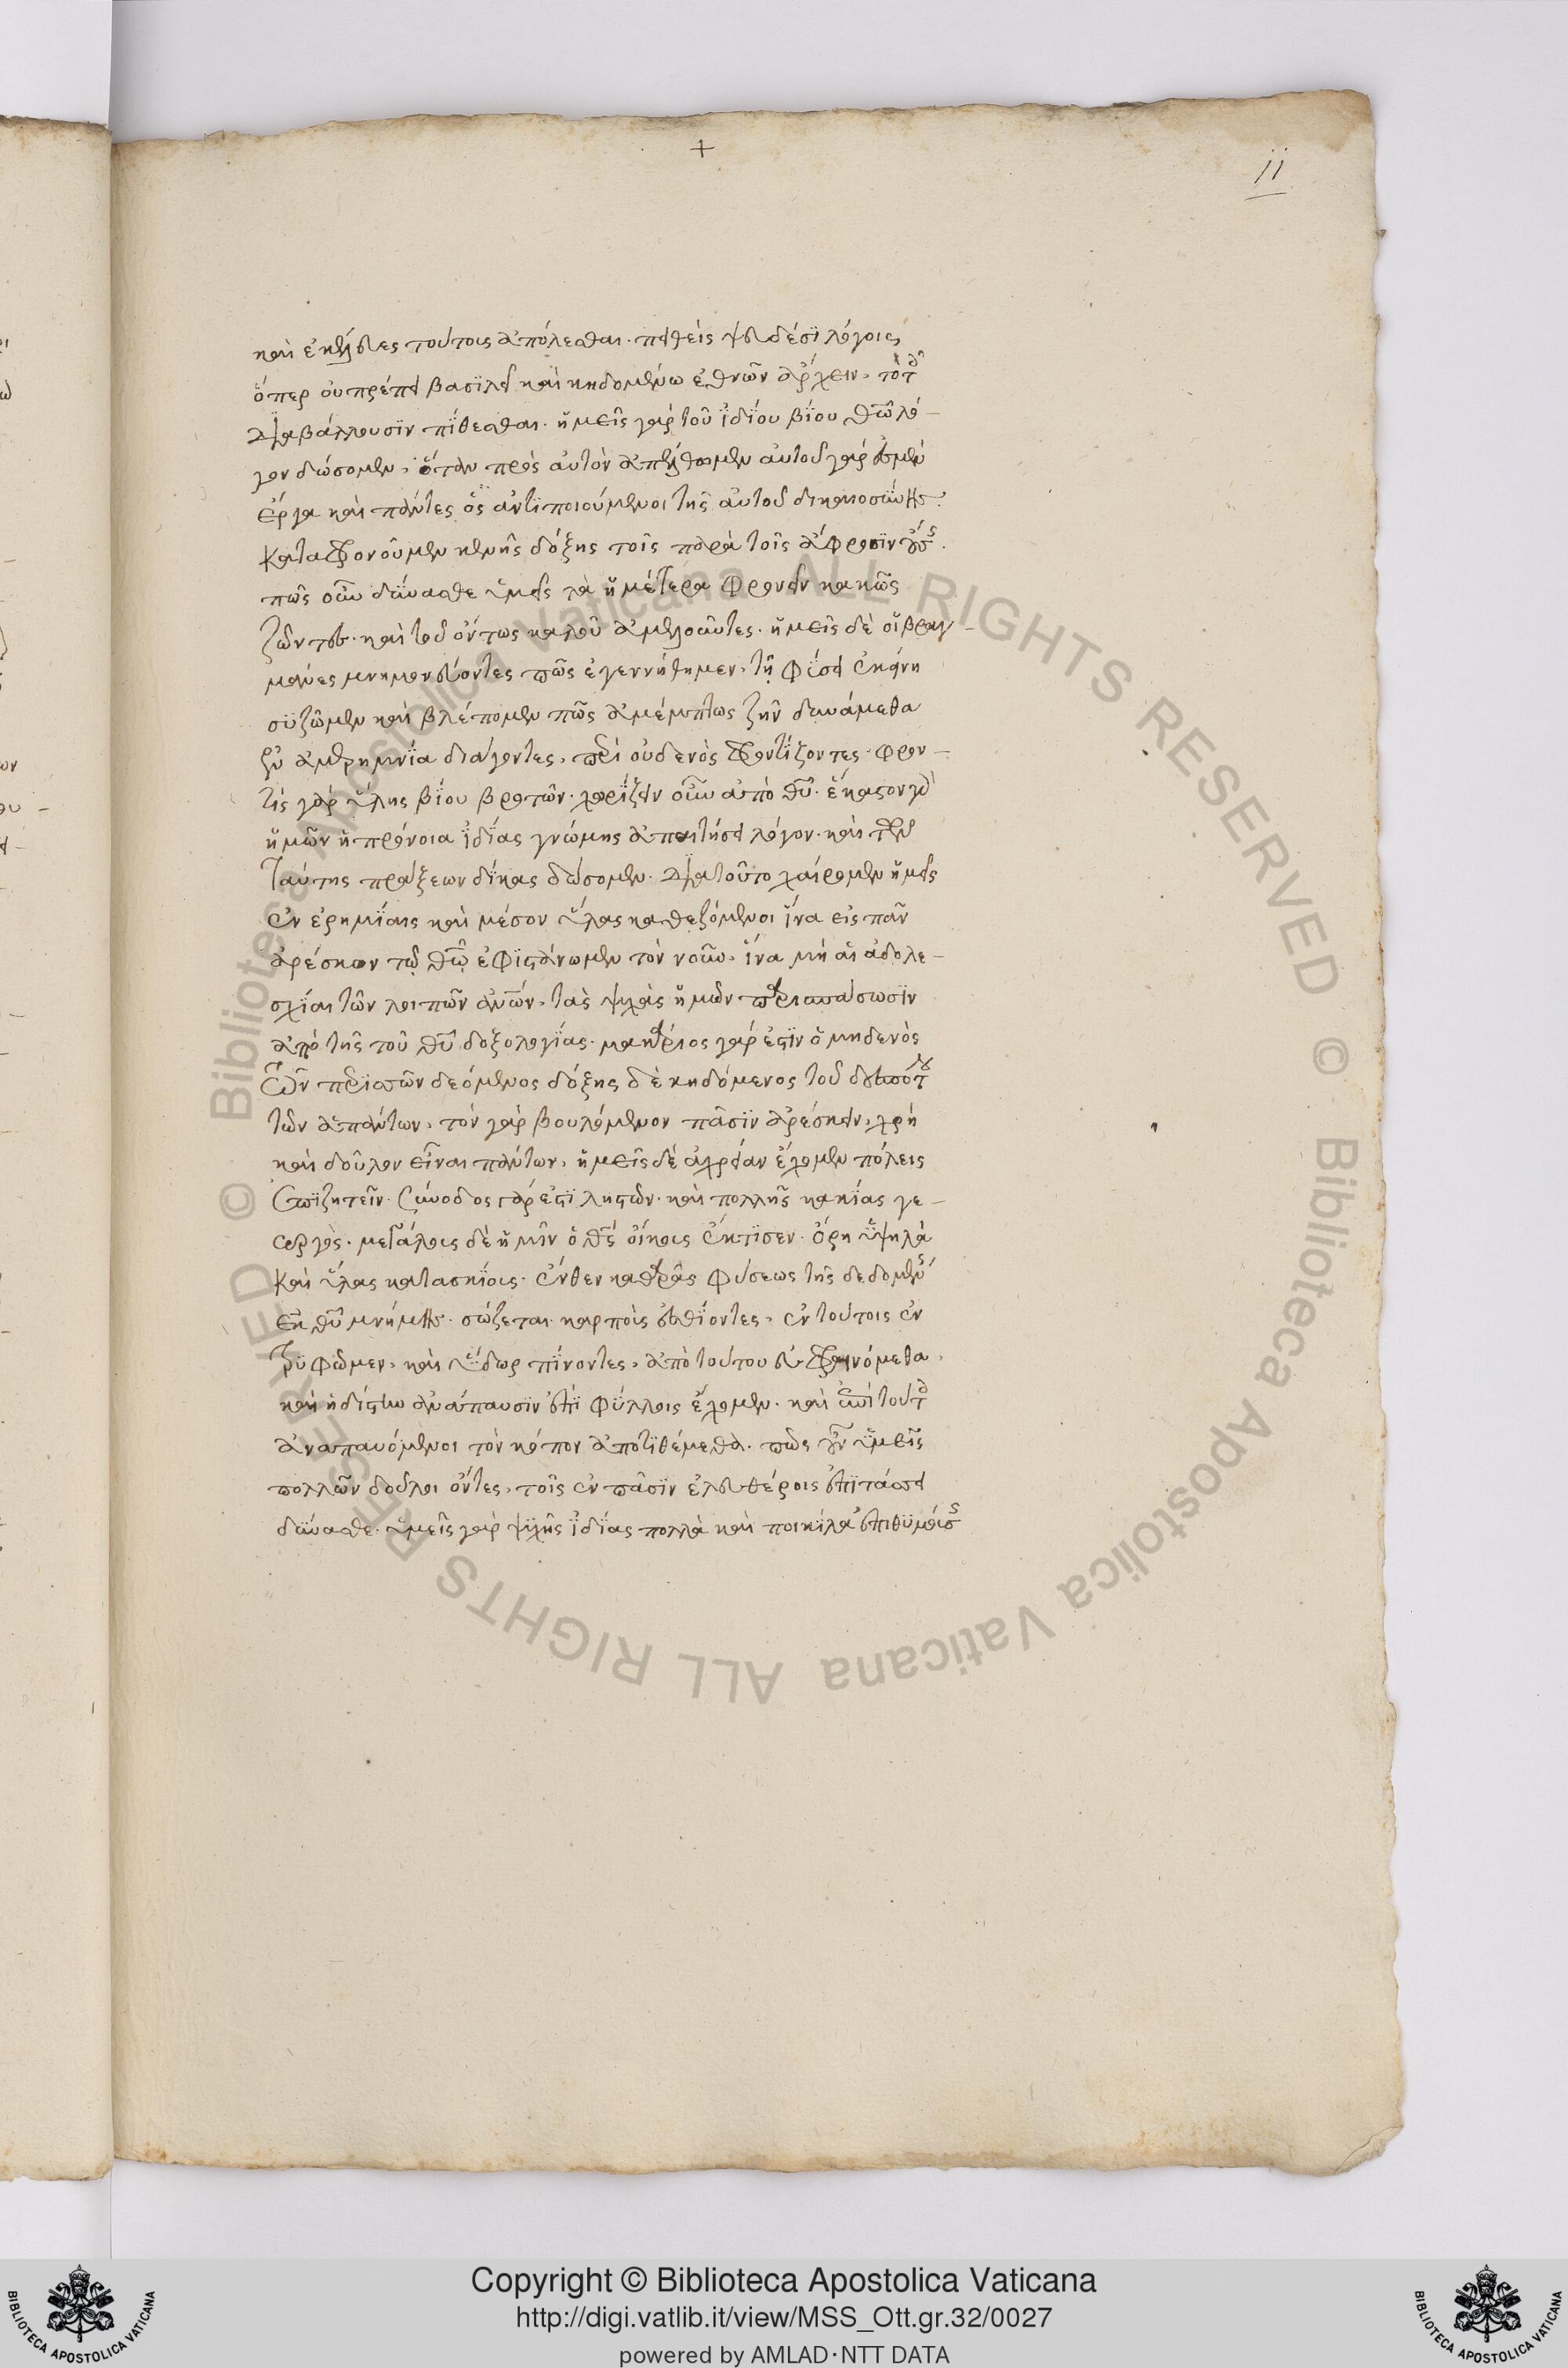 +
11
καὶ ἐκέλευες τούτοις ἀπόλεσθαι. πεισθεὶς ψευδέσϊ λόγοις
ὅπερ οὐ πρέπει βασϊλεῖ καὶ κηδομένω ἐθνῶν ἄρχειν,
διαβάλλουσϊν πίθεσθαι. ἡμεῖς γὰρ τοῦ ἰδΐου βΐου θῶ λό-
γον δώσομεν, ὅταν πρὸς αὐτὸν ἀπέλθωμεν αὐτοῦ γάρ ἐσμεν
ἔργα καὶ πάντες οἱ ἀντϊποιούμενοι τῆς αὐτοῦ δικαιοσύνης
καταφρονοῦμεν κενῆς δόξης τοῖς παρὰ τοῖς ἄφροσϊν
πῶς οὖν δύνασθε ὑμεῖς τὰ ἡμέτερα φρονεῖν κακῶς
ζῶντες. καὶ τοῦ ὄντως καλοῦ ἀμελοῦντες. ἡμεῖς δὲ οἱ βραγ-
μάνες μνημονεύοντες πῶς ἐγεννήθημεν, τῆ φύσει ἐκείνη
συζῶμεν καὶ βλέπομεν πῶς ἀμέμπτως ζῆν δυνάμεθα
ἐν ἀμεριμνΐα διάγοντες, περὶ οὐδενὸς φροντΐζοντες. φρον-
τὶς γὰρ ὕλης βΐου βροτῶν. χωρΐζειν οὖν ἀπὸ θυ. ἕκαστον γὰρ
ἡμῶν ἡ πρόνοια ἰδΐας γνώμης ἀπαιτήσει λόγον. καὶ τῶν
ταύτης πράξεων δΐκας δώσομεν. διατοῦτο χαίρομεν ἡμεῖς
ἐν ἐρημΐαις καὶ μέσον ὕλας καθεζόμενοι ἵνα εἰς πᾶν
ἀρέσκον τῷ θῷ ἐφϊστάνωμεν τὸν νοῦν, ἵνα μὴ αἱ ἀδολε-
σχΐαι τῶν λοιπῶν ἀνῶν, τὰς ψυχὰς ἡμῶν περισπάσωσϊν
ἀπὸ τῆς τοῦ θυ δοξολογΐας. μακάριος γάρ ἐστϊν ὁ μηδενὸς
τῶν περισσῶν δεόμενος δόξης δὲ κηδόμενος τοῦ
τῶν ἁπάντων, τὸν γὰρ βουλόμενον πᾶσϊν ἀρέσκειν, χρὴ
καὶ δοῦλον εἶναι πάντων, ἡμεῖς δὲ οὐ χρείαν ἔχομεν πόλεις
ἐπϊζητεῖν. σύνοδος γάρ ἐστϊ ληστῶν. καὶ πολλῆς κακΐας γε-
ωργὸς. μεγάλοις δὲ ἡμῖν ὁ θς οἴκοις ἔκτϊσεν. ὄρη ὑψηλὰ
καὶ ὕλας κατασκΐοις. ἔνθεν καθαρᾶς φύσεως τῆς δεδομένης
ἐκ θυ μνήμης. σώζεται. καρποὺς ἐσθΐοντες, ἐν τούτοις ἐν
τρυφῶμεν, καὶ ὕδωρ πΐνοντες, ἀπὸ τούτου εὐφραινόμεθα,
καὶ ἡδίστην ἀνάπαυσϊν ἐπϊ φύλλοις ἔχομεν. καὶ ἐπὶ τούτοις
ἀναπαυόμενοι τὸν κόπον ἀποτϊθέμεθα. πῶς οὖν ὑμεῖς
πολλῶν δοῦλοι ὄντες, τοῖς ἐν πᾶσϊν ἐλευθέροις ἐπϊτάσσει
δύνασθε. ὑμεῖς γὰρ ψυχῆς ἰδΐας πολλὰ καὶ ποικίλα ἐπιθυμΐαις
Copyright © Biblioteca Apostolica Vaticana
http://digi.vatlib.it/view/MSS_Ott.gr.32/0027
powered by AMLAD·NTT DATA
BIBLIOTECA APOSTOLICA VATICANA
BIBLIOTECA APOSTOLICA VATICANA
© Biblioteca Apostolica Vaticana ALL RIGHTS RESERVED © Biblioteca Apostolica Vaticana ALL RIGHTS RESERVED